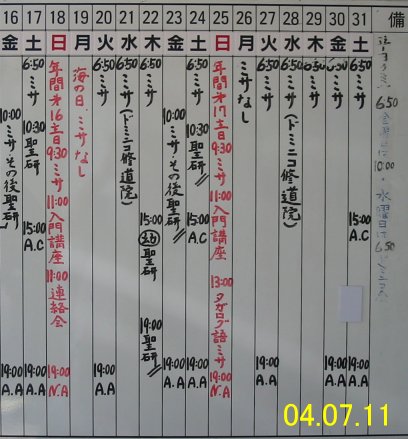 16 17 18 19 20 21 22 23 24 25 26 27 28 29 30 31 備
金 土 日 月 火 水 木 金 土 日 月 火 水 木 金 土
10:00 ミサ・その後聖研 19:00 A.A
6:50 ミサ 10:30 聖研 15:00 A.C 19:00 A.A
年間第16主日 9:30 ミサ 11:00 入門講座 11:00 連絡会 19:00 N.A
海の日、ミサなし
6:50 ミサ 19:00 A.A
6:50 ミサ(ドミニコ修道院)
6:50 ミサ 15:00 聖研 19:00 聖研
10:00 ミサ・その後聖研 19:00 A.A
6:50 ミサ 10:30 聖研 15:00 A.C 19:00 A.A
年間第17主日 9:30 ミサ 11:00 入門講座 13:00 タガログ語ミサ 19:00 N.A
ミサなし
6:50 ミサ 19:00 A.A
6:50 ミサ(ドミニコ修道院)
6:50 ミサ
6:50 ミサ 19:00 A.A
6:50 ミサ 15:00 A.C 19:00 A.A
6:50 金曜日は 10:00 水曜日は 6:50
04.07.11